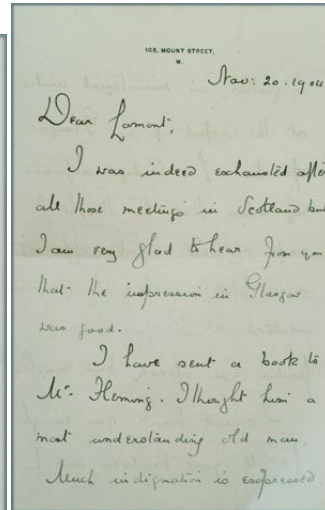 105, MOUNT STREET,
W.
Nov: 20. 1904
Dear Lamont,
I was indeed exhausted after
all those meetings in Scotland but
I am very glad to hear from you
that the impression in Glasgow
was good.
I have sent a book to
Mr. Fleming. I thought him a
most understanding old man.
Much indignation is expressed